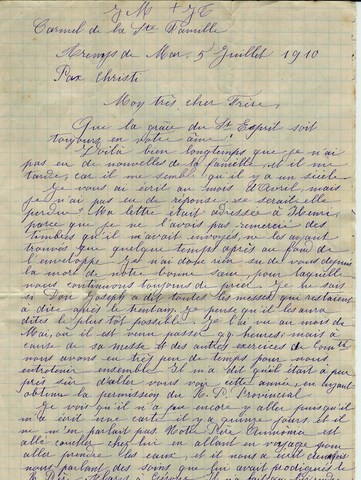 J M + J T
Carmel de la Ste Famille
Arenys de Mar, 5 Juillet 1910
Pax Christi
Mon très cher Frère,
Que la grâce du St Esprit soit
toujours en votre âme!
Voilà bien longtemps que je n'ai
pas eu de nouvelles de la famille, et il me
tarde, car il me semble qu'il y a un siècle.
Je vous ai écrit au mois d'Avril, mais
je n'ai pas eu de réponse, se serait-elle
perdue? Ma lettre était adressée à Henri,
parce que je ne l'avais pas remercié des
timbres qu'il m'avait envoyés, ne les ayant
trouvés que quelque temps après au fond de
l'enveloppe. Je n'ai donc rien su de vous depuis
la mort de notre bonne sœur, pour laquelle
nous continuons toujours de prier. Je ne sais
si Don Joseph a dit toutes les messes qui restaient
à dire après le trentain. Je pense qu'il les aura
dites le plus tôt possible. Je l'ai vu au mois de
Mai, où il est venu passer 24 heures; mais à
cause de sa messe et des autres exercices de
nous avons eu très peu de temps pour nous
entretenir ensemble. Il m'a dit qu'il était à peu
près sûr d'aller vous voir cette année en ayant
obtenu la permission du R. P. Provincial
Je vois qu'il n'a pu encore y aller puisqu'il
m'a écrit une carte il y a quinze jours, et il
ne m'en parlait pas. Notre Père est
allé coucher chez lui en allant en voyage pour
aller prendre les eaux, et il nous a écrit
nous parlant des soins que lui avait prodigués le